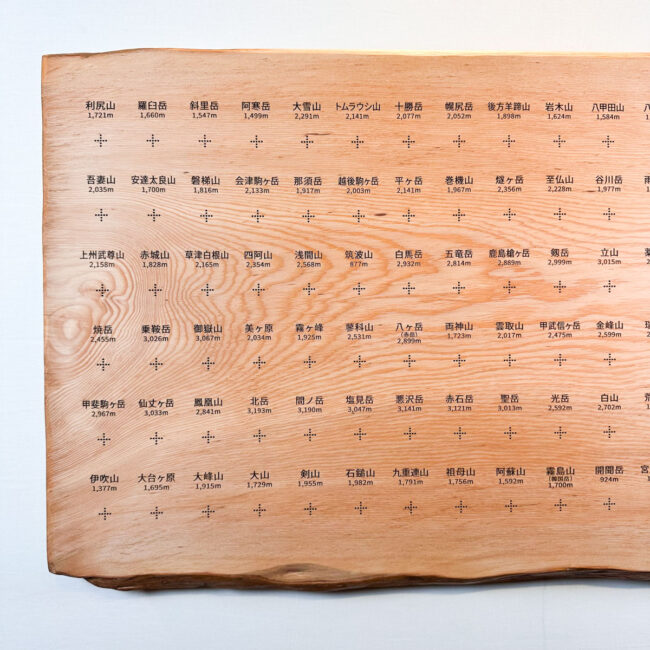 利尻山 羅臼岳 斜里岳 阿寒岳 大雪山 トムラウシ山 十勝岳 幌尻岳 後方羊蹄山 岩木山 八甲田山
1,721m 1,660m 1,547m 1,499m 2,291m 2,141m 2,077m 2,052m 1,898m 1,624m 1,584m
吾妻山 安達太良山 磐梯山 会津駒ヶ岳 那須岳 越後駒ヶ岳 平ヶ岳 巻機山 燧ヶ岳 至仏山 谷川岳
2,035m 1,700m 1,816m 2,133m 1,917m 2,003m 2,141m 1,967m 2,356m 2,228m 1,977m
上州武尊山 赤城山 草津白根山 四阿山 浅間山 筑波山 白馬岳 五竜岳 鹿島槍ヶ岳 剱岳 立山
2,158m 1,828m 2,165m 2,354m 2,568m 877m 2,932m 2,814m 2,889m 2,999m 3,015m
焼岳 乗鞍岳 御嶽山 美ヶ原 霧ヶ峰 蓼科山 八ヶ岳 両神山 雲取山 甲武信ヶ岳 金峰山
(赤岳)
2,455m 3,026m 3,067m 2,034m 1,925m 2,531m 2,899m 1,723m 2,017m 2,475m 2,599m
甲斐駒ヶ岳 仙丈ヶ岳 鳳凰山 北岳 間ノ岳 塩見岳 悪沢岳 赤石岳 聖岳 光岳 白山
2,967m 3,033m 2,841m 3,193m 3,190m 3,047m 3,141m 3,121m 3,013m 2,592m 2,702m
伊吹山 大台ヶ原 大峰山 大山 剣山 石鎚山 九重連山 祖母山 阿蘇山 霧島山 開聞岳
(韓国岳)
1,377m 1,695m 1,915m 1,729m 1,955m 1,982m 1,791m 1,756m 1,592m 1,700m 924m